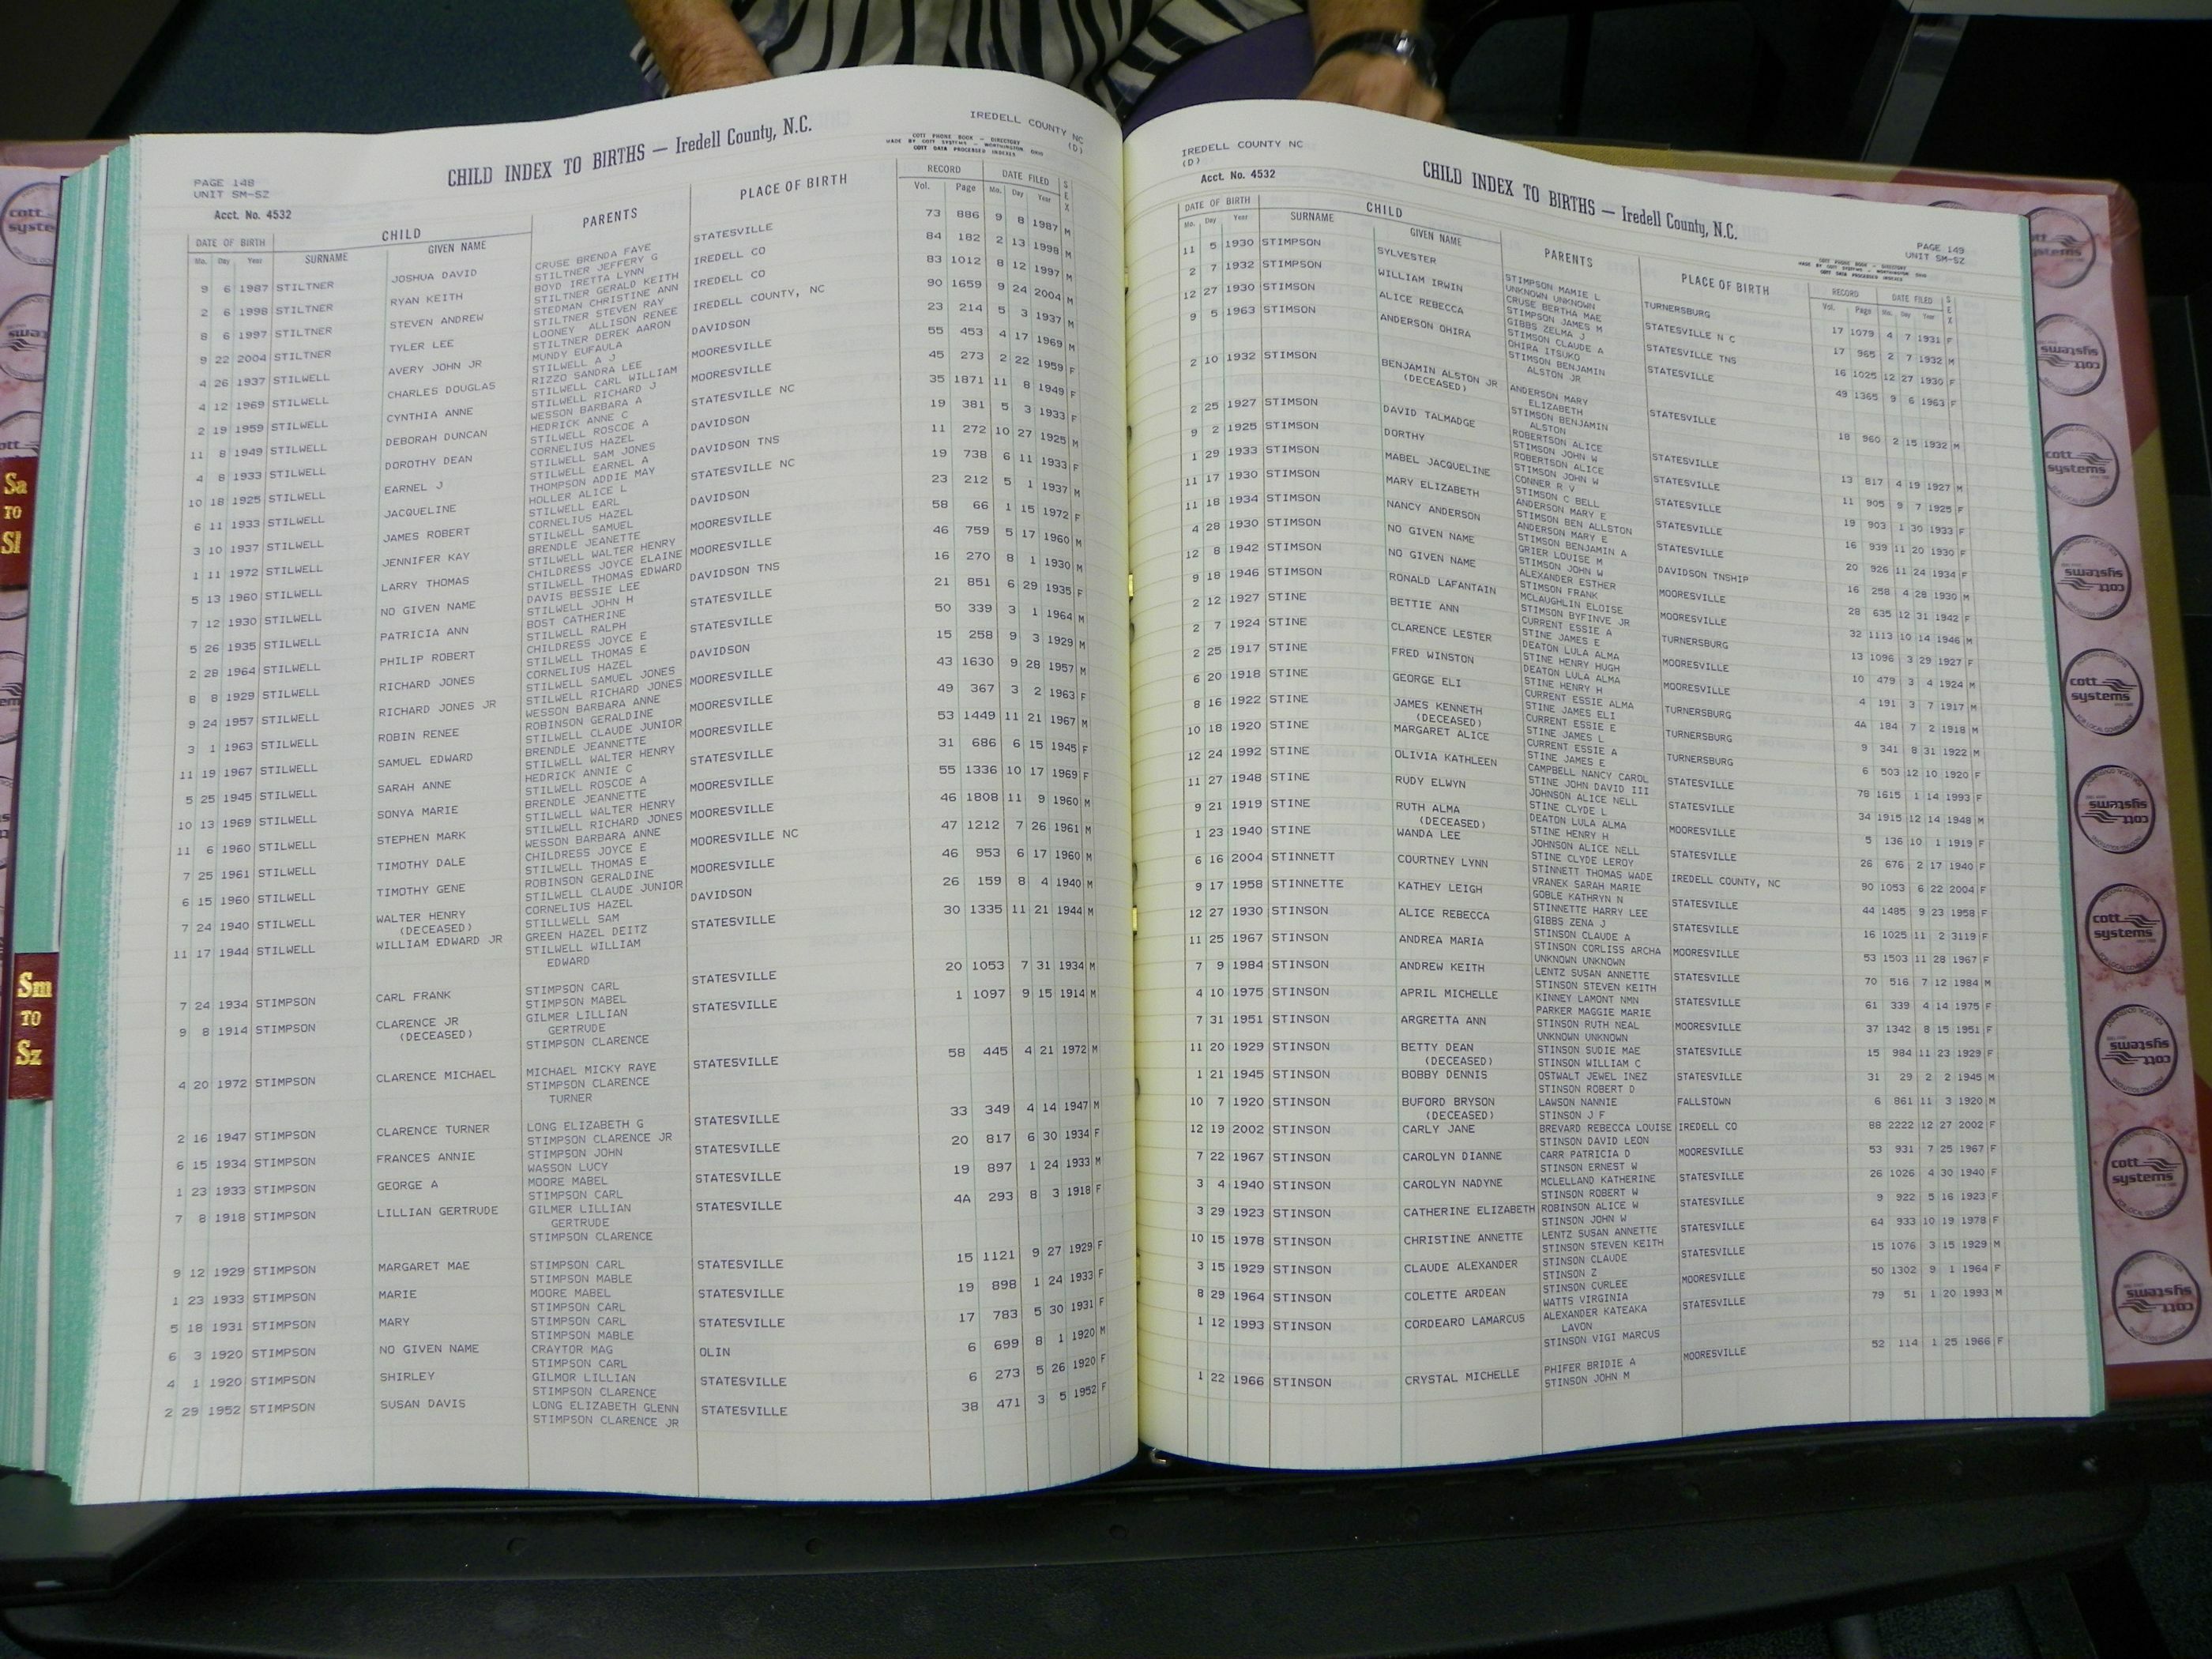 IREDELL COUNTY NC
(D)
CHILD INDEX TO BIRTHS — Iredell County, N.C.
COTT PHONE BOOK – DIRECTORY
MADE BY COTT SYSTEMS – WORTHINGTON OHIO
COTT DATA PROCESSED INDEXES
PAGE 148
UNIT SM-SZ
Acct. No. 4532
DATE OF BIRTH CHILD PARENTS PLACE OF BIRTH RECORD DATE FILED SEX
Mo. Day Year SURNAME GIVEN NAME Vol. Page Mo. Day Year
9 6 1987 STILTNER JOSHUA DAVID CRUSE BRENDA FAYE STATESVILLE 73 886 9 8 1987 M
STILTNER JEFFERY G
2 6 1998 STILTNER RYAN KEITH BOYD IRETTA LYNN IREDELL CO 84 182 2 13 1998 M
STILTNER GERALD KEITH
8 6 1997 STILTNER STEVEN ANDREW STEDMAN CHRISTINE ANN IREDELL CO 83 1012 8 12 1997 M
STILTNER STEVEN RAY
9 22 2004 STILTNER TYLER LEE LOONEY ALLISON RENEE IREDELL COUNTY, NC 90 1659 9 24 2004 M
STILTNER DEREK AARON
4 26 1937 STILWELL AVERY JOHN JR MUNDY EUFAULA DAVIDSON 23 214 5 3 1937 M
STILWELL A J
4 12 1969 STILWELL CHARLES DOUGLAS RIZZO SANDRA LEE MOORESVILLE 55 453 4 17 1969 M
STILWELL CARL WILLIAM
2 19 1959 STILWELL CYNTHIA ANNE STILWELL RICHARD J MOORESVILLE 45 273 2 22 1959 F
WESSON BARBARA A
11 8 1949 STILWELL DEBORAH DUNCAN HEDRICK ANNE C STATESVILLE NC 35 1871 11 8 1949 F
STILWELL ROSCOE A
4 8 1933 STILWELL DOROTHY DEAN CORNELIUS HAZEL DAVIDSON 19 381 5 3 1933 F
STILWELL SAM JONES
10 18 1925 STILWELL EARNEL J STILWELL EARNEL A DAVIDSON TNS 11 272 10 27 1925 M
THOMPSON ADDIE MAY
6 11 1933 STILWELL JACQUELINE HOLLER ALICE L STATESVILLE NC 19 738 6 11 1933 F
STILWELL EARL
3 10 1937 STILWELL JAMES ROBERT CORNELIUS HAZEL DAVIDSON 23 212 5 1 1937 M
STILWELL SAMUEL
1 11 1972 STILWELL JENNIFER KAY BRENDLE JEANETTE MOORESVILLE 58 66 1 15 1972 F
STILWELL WALTER HENRY
5 13 1960 STILWELL LARRY THOMAS CHILDRESS JOYCE ELAINE MOORESVILLE 46 759 5 17 1960 M
STILWELL THOMAS EDWARD
7 12 1930 STILWELL NO GIVEN NAME DAVIS BESSIE LEE DAVIDSON TNS 16 270 8 1 1930 M
STILWELL JOHN H
5 26 1935 STILWELL PATRICIA ANN BOST CATHERINE STATESVILLE 21 851 6 29 1935 F
STILWELL RALPH
2 28 1964 STILWELL PHILIP ROBERT CHILDRESS JOYCE E STATESVILLE 50 339 3 1 1964 M
STILWELL THOMAS E
8 8 1929 STILWELL RICHARD JONES CORNELIUS HAZEL DAVIDSON 15 258 9 3 1929 M
STILWELL SAMUEL JONES
9 24 1957 STILWELL RICHARD JONES JR STILWELL RICHARD JONES MOORESVILLE 43 1630 9 28 1957 M
WESSON BARBARA ANNE
3 1 1963 STILWELL ROBIN RENEE ROBINSON GERALDINE MOORESVILLE 49 367 3 2 1963 F
STILWELL CLAUDE JUNIOR
11 19 1967 STILWELL SAMUEL EDWARD BRENDLE JEANNETTE MOORESVILLE 53 1449 11 21 1967 M
STILWELL WALTER HENRY
5 25 1945 STILWELL SARAH ANNE HEDRICK ANNIE C STATESVILLE 31 686 6 15 1945 F
STILWELL ROSCOE A
10 13 1969 STILWELL SONYA MARIE BRENDLE JEANETTE MOORESVILLE 55 1336 10 17 1969 F
STILWELL WALTER HENRY
11 6 1960 STILWELL STEPHEN MARK STILWELL RICHARD JONES MOORESVILLE 46 1808 11 9 1960 M
WESSON BARBARA ANNE
7 25 1961 STILWELL TIMOTHY DALE CHILDRESS JOYCE E MOORESVILLE NC 47 1212 7 26 1961 M
STILWELL THOMAS E
6 15 1960 STILWELL TIMOTHY GENE ROBINSON GERALDINE MOORESVILLE 46 953 6 17 1960 M
STILWELL CLAUDE JUNIOR
7 24 1940 STILWELL WALTER HENRY CORNELIUS HAZEL DAVIDSON 26 159 8 4 1940 M
(DECEASED) STILLWELL SAM
11 17 1944 STILWELL WILLIAM EDWARD JR GREEN HAZEL DEITZ STATESVILLE 30 1335 11 21 1944 M
STILWELL WILLIAM
EDWARD
7 24 1934 STIMPSON CARL FRANK STIMPSON CARL STATESVILLE 20 1053 7 31 1934 M
STIMPSON MABEL
9 8 1914 STIMPSON CLARENCE JR GILMER LILLIAN STATESVILLE 1 1097 9 15 1914 M
(DECEASED) GERTRUDE
STIMPSON CLARENCE
4 20 1972 STIMPSON CLARENCE MICHAEL MICHAEL MICKY RAYE STATESVILLE 58 445 4 21 1972 M
STIMPSON CLARENCE
TURNER
2 16 1947 STIMPSON CLARENCE TURNER LONG ELIZABETH G STATESVILLE 33 349 4 14 1947 M
STIMPSON CLARENCE JR
6 15 1934 STIMPSON FRANCES ANNIE STIMPSON JOHN STATESVILLE 20 817 6 30 1934 F
WASSON LUCY
1 23 1933 STIMPSON GEORGE A MOORE MABEL STATESVILLE 19 897 1 24 1933 M
STIMPSON CARL
7 8 1918 STIMPSON LILLIAN GERTRUDE GILMER LILLIAN STATESVILLE 4A 293 8 3 1918 F
GERTRUDE
STIMPSON CLARENCE
9 12 1929 STIMPSON MARGARET MAE STIMPSON CARL STATESVILLE 15 1121 9 27 1929 F
STIMPSON MABLE
1 23 1933 STIMPSON MARIE MOORE MABEL STATESVILLE 19 898 1 24 1933 F
STIMPSON CARL
5 18 1931 STIMPSON MARY STIMPSON CARL STATESVILLE 17 783 5 30 1931 F
STIMPSON MABLE
6 3 1920 STIMPSON NO GIVEN NAME CRAYTOR MAG OLIN 6 699 8 1 1920 M
STIMPSON CARL
4 1 1920 STIMPSON SHIRLEY GILMOR LILLIAN STATESVILLE 6 273 5 26 1920 F
STIMPSON CLARENCE
2 29 1952 STIMPSON SUSAN DAVIS LONG ELIZABETH GLENN STATESVILLE 38 471 3 5 1952 F
STIMPSON CLARENCE JR
IREDELL COUNTY NC
(D)
Acct. No. 4532
CHILD INDEX TO BIRTHS — Iredell County, N.C.
PAGE 149
UNIT SM-SZ
COTT PHONE BOOK – DIRECTORY
MADE BY COTT SYSTEMS – WORTHINGTON OHIO
COTT DATA PROCESSED INDEXES
DATE OF BIRTH CHILD PARENTS PLACE OF BIRTH RECORD DATE FILED SEX
Mo. Day Year SURNAME GIVEN NAME Vol. Page Mo. Day Year
11 5 1930 STIMPSON SYLVESTER STIMPSON MAMIE L TURNERSBURG 17 1079 4 7 1931 F
UNKNOWN UNKNOWN
2 7 1932 STIMPSON WILLIAM IRWIN CRUSE BERTHA MAE STATESVILLE N C 17 965 2 7 1932 M
STIMPSON JAMES M
12 27 1930 STIMSON ALICE REBECCA GIBBS ZELMA J STATESVILLE TNS 16 1025 12 27 1930 F
STIMSON CLAUDE A
9 5 1963 STIMSON ANDERSON OHIRA OHIRA ITSUKO STATESVILLE 49 1365 9 6 1963 F
STIMSON BENJAMIN
ALSTON JR
2 10 1932 STIMSON BENJAMIN ALSTON JR ANDERSON MARY STATESVILLE 18 960 2 15 1932 M
(DECEASED) ELIZABETH
STIMSON BENJAMIN
ALSTON
2 25 1927 STIMSON DAVID TALMADGE ROBERTSON ALICE STATESVILLE 13 817 4 19 1927 M
STIMSON JOHN W
9 2 1925 STIMSON DORTHY ROBERTSON ALICE STATESVILLE 11 905 9 7 1925 F
STIMSON JOHN W
1 29 1933 STIMSON MABEL JACQUELINE CONNER R V STATESVILLE 19 903 1 30 1933 F
STIMSON C BELL
11 17 1930 STIMSON MARY ELIZABETH ANDERSON MARY E STATESVILLE 16 939 11 20 1930 F
STIMSON BEN ALLSTON
11 18 1934 STIMSON NANCY ANDERSON ANDERSON MARY E STATESVILLE 20 926 11 24 1934 F
STIMSON BENJAMIN A
4 28 1930 STIMSON NO GIVEN NAME GRIER LOUISE M DAVIDSON TNSHIP 16 258 4 28 1930 M
STIMSON JOHN W
12 8 1942 STIMSON NO GIVEN NAME ALEXANDER ESTHER MOORESVILLE 28 635 12 31 1942 F
STIMSON FRANK
9 18 1946 STIMSON RONALD LAFANTAIN MCLAUGHLIN ELOISE MOORESVILLE 32 1113 10 14 1946 M
STIMSON BYFINVE JR
2 12 1927 STINE BETTIE ANN CURRENT ESSIE A TURNERSBURG 13 1096 3 29 1927 F
STINE JAMES E
2 7 1924 STINE CLARENCE LESTER DEATON LULA ALMA MOORESVILLE 10 479 3 4 1924 M
STINE HENRY HUGH
2 25 1917 STINE FRED WINSTON DEATON LULA ALMA MOORESVILLE 4 191 3 7 1917 M
STINE HENRY H
6 20 1918 STINE GEORGE ELI CURRENT ESSIE ALMA TURNERSBURG 4A 184 7 2 1918 M
STINE JAMES ELI
8 16 1922 STINE JAMES KENNETH CURRENT ESSIE E TURNERSBURG 9 341 8 31 1922 M
(DECEASED) STINE JAMES L
10 18 1920 STINE MARGARET ALICE CURRENT ESSIE A TURNERSBURG 6 503 12 10 1920 F
STINE JAMES E
12 24 1992 STINE OLIVIA KATHLEEN CAMPBELL NANCY CAROL STATESVILLE 78 1615 1 14 1993 F
STINE JOHN DAVID III
11 27 1948 STINE RUDY ELWYN JOHNSON ALICE NELL STATESVILLE 34 1915 12 14 1948 M
STINE CLYDE L
9 21 1919 STINE RUTH ALMA DEATON LULA ALMA MOORESVILLE 5 136 10 1 1919 F
(DECEASED) STINE HENRY H
1 23 1940 STINE WANDA LEE JOHNSON ALICE NELL STATESVILLE 26 676 2 17 1940 F
STINE CLYDE LEROY
6 16 2004 STINNETT COURTNEY LYNN STINNETT THOMAS WADE IREDELL COUNTY, NC 90 1053 6 22 2004 F
VRANEK SARAH MARIE
9 17 1958 STINNETTE KATHEY LEIGH GOBLE KATHRYN N STATESVILLE 44 1485 9 23 1958 F
STINNETTE HARRY LEE
12 27 1930 STINSON ALICE REBECCA GIBBS ZENA J STATESVILLE 16 1025 11 2 3119 F
STINSON CLAUDE A
11 25 1967 STINSON ANDREA MARIA STINSON CORLISS ARCHA MOORESVILLE 53 1503 11 28 1967 F
UNKNOWN UNKNOWN
7 9 1984 STINSON ANDREW KEITH LENTZ SUSAN ANNETTE STATESVILLE 70 516 7 12 1984 M
STINSON STEVEN KEITH
4 10 1975 STINSON APRIL MICHELLE KINNEY LAMONT NMN STATESVILLE 61 339 4 14 1975 F
PARKER MAGGIE MARIE
7 31 1951 STINSON ARGRETTA ANN STINSON RUTH NEAL MOORESVILLE 37 1342 8 15 1951 F
UNKNOWN UNKNOWN
11 20 1929 STINSON BETTY DEAN STINSON SUDIE MAE STATESVILLE 15 984 11 23 1929 F
(DECEASED) STINSON WILLIAM C
1 21 1945 STINSON BOBBY DENNIS OSTWALT JEWEL INEZ STATESVILLE 31 29 2 2 1945 M
STINSON ROBERT D
10 7 1920 STINSON BUFORD BRYSON LAWSON NANNIE FALLSTOWN 6 861 11 3 1920 M
(DECEASED) STINSON J F
12 19 2002 STINSON CARLY JANE BREVARD REBECCA LOUISE IREDELL CO 88 2222 12 27 2002 F
STINSON DAVID LEON
7 22 1967 STINSON CAROLYN DIANNE CARR PATRICIA D MOORESVILLE 53 931 7 25 1967 F
STINSON ERNEST W
3 4 1940 STINSON CAROLYN NADYNE MCLELLAND KATHERINE STATESVILLE 26 1026 4 30 1940 F
STINSON ROBERT W
3 29 1923 STINSON CATHERINE ELIZABETH ROBINSON ALICE W STATESVILLE 9 922 5 16 1923 F
STINSON JOHN W
10 15 1978 STINSON CHRISTINE ANNETTE LENTZ SUSAN ANNETTE STATESVILLE 64 933 10 19 1978 F
STINSON STEVEN KEITH
3 15 1929 STINSON CLAUDE ALEXANDER STINSON CLAUDE STATESVILLE 15 1076 3 15 1929 M
STINSON Z
8 29 1964 STINSON COLETTE ARDEAN STINSON CURLEE MOORESVILLE 50 1302 9 1 1964 F
WATTS VIRGINIA
1 12 1993 STINSON CORDEARO LAMARCUS ALEXANDER KATEAKA STATESVILLE 79 51 1 20 1993 M
LAVON
STINSON VIGI MARCUS
1 22 1966 STINSON CRYSTAL MICHELLE PHIFER BRIDIE A MOORESVILLE 52 114 1 25 1966 F
STINSON JOHN M
Sa
TO
Sl
Sm
TO
Sz
cott
systems